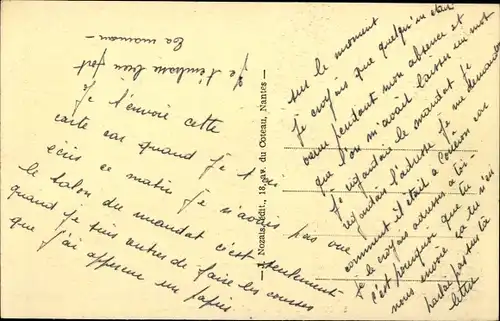 Je t'envoie cette
carte car quand je t'ai
écris ce matin je n'avais pas vue
le talon du mandat c'est seulement
quand je suis entrer de faire les courses
que j'ai apperçue un papier
sur le moment
je croyais que quelqu'un était
venu pendant mon absence et
que l'on m'avait laisser un mot
Je regardais le mandat je
regardais l'adresse je me demandais
comment il était à Couëron car
je le croyais adressé à toi
c'est pourquoi que tu
nous envoie ça tu n'en
parlais pas sur ta
lettre
Je t'embrasse bien fort
ta maman -
J. Nozais, édit., 18, av. du Coteau, Nantes —